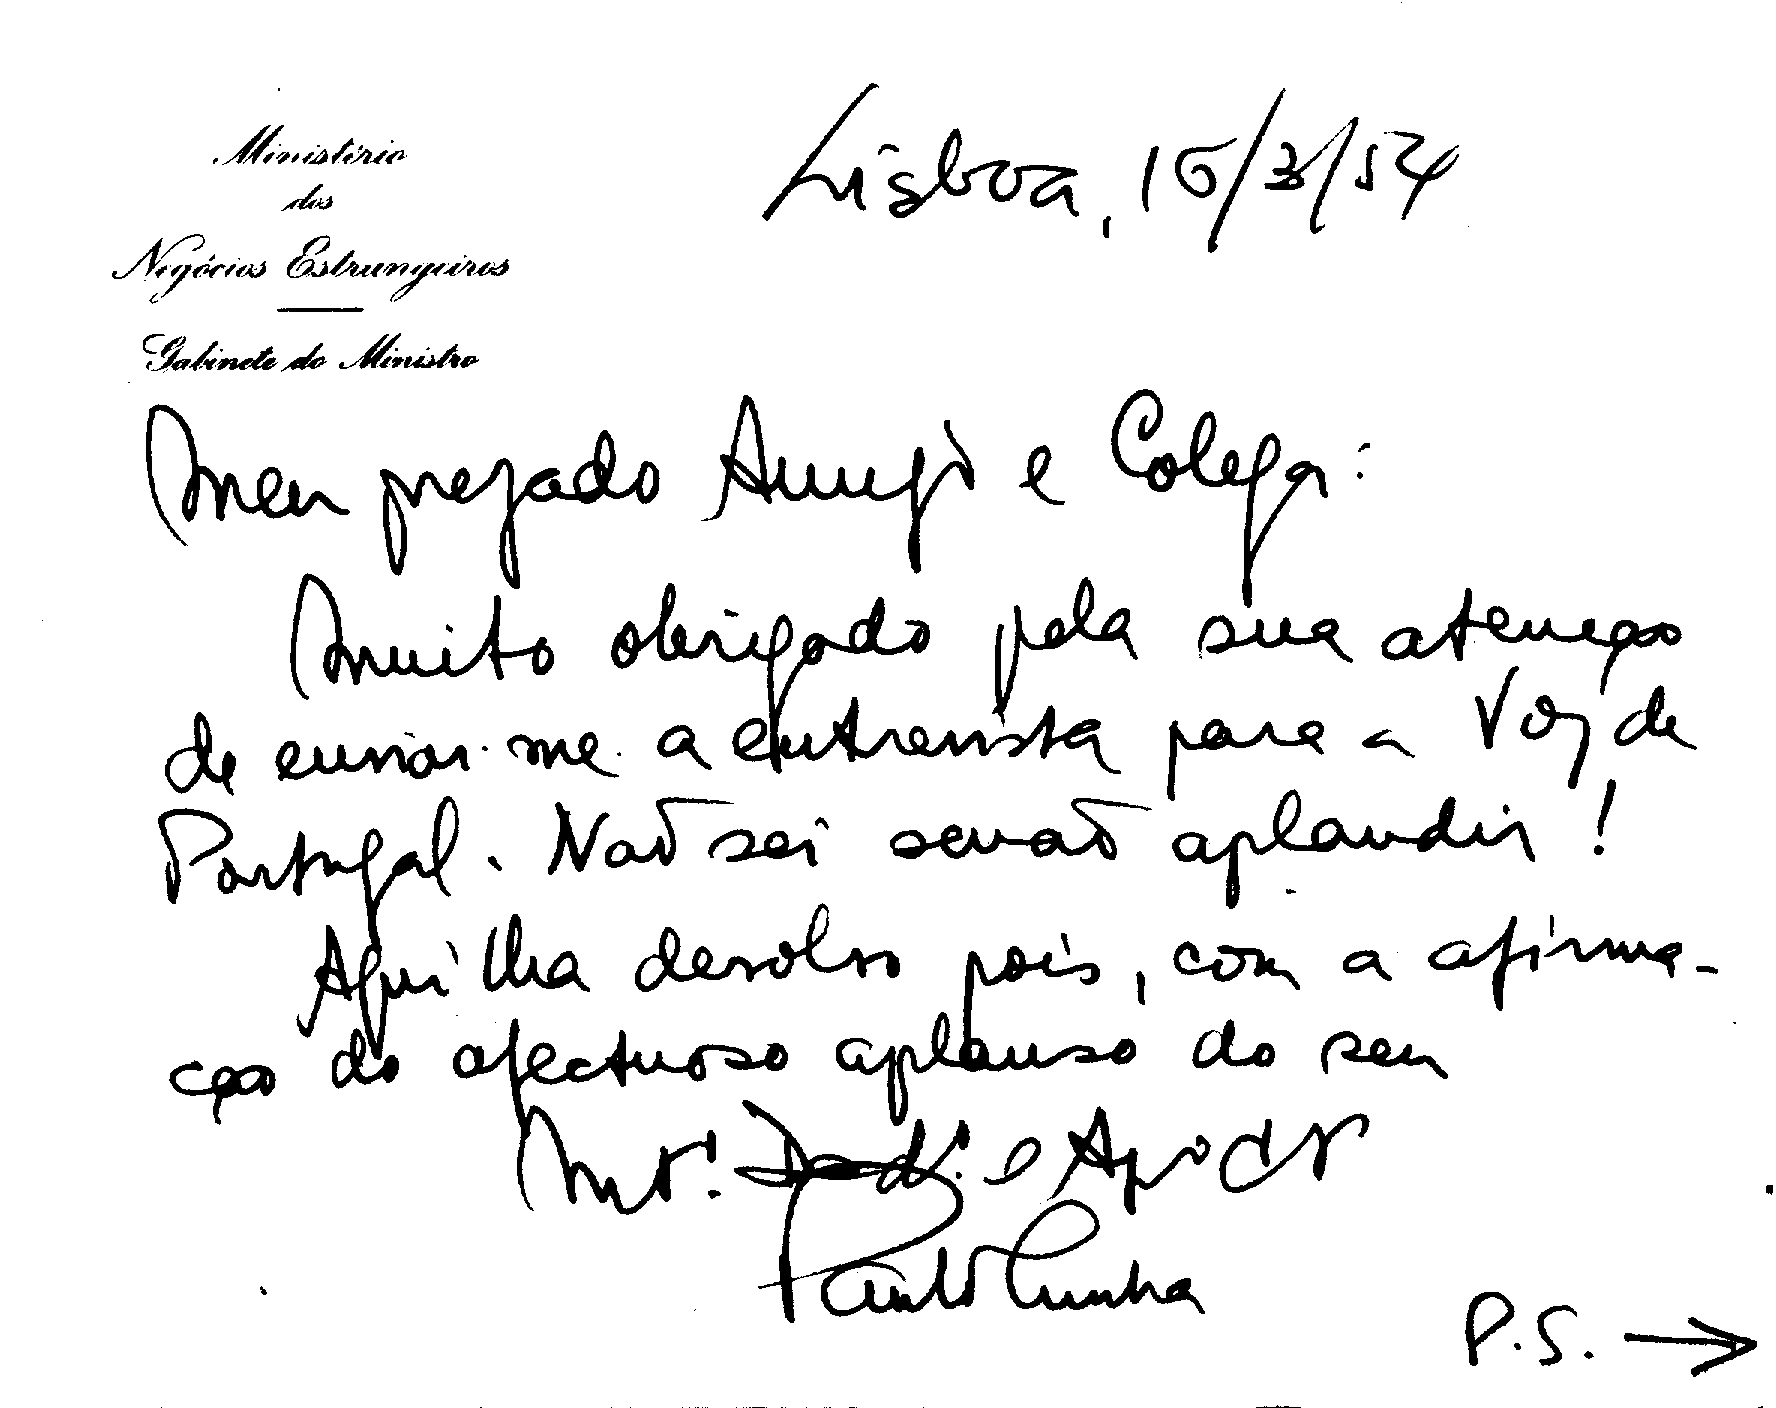 Ministério
dos
Negócios Estrangeiros
Gabinete do Ministro
Lisboa, 16/3/54
Meu prezado Amigo e Colega:
Muito obrigado pela sua atenção
de enviar-me a entrevista para a Voz de
Portugal. Não sei senão aplaudir!
Aqui lha devolvo pois, com a afirma-
ção do afectuoso aplauso do seu
Mtº. e
Paulo Cunha
P.S. →